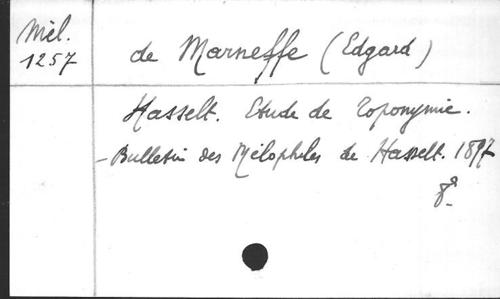 Mél.
1257
de Marneffe (Edgard)
Hasselt. Etude de Toponymie.
- Bulletin des Mélophiles de Hasselt. 1897
8°